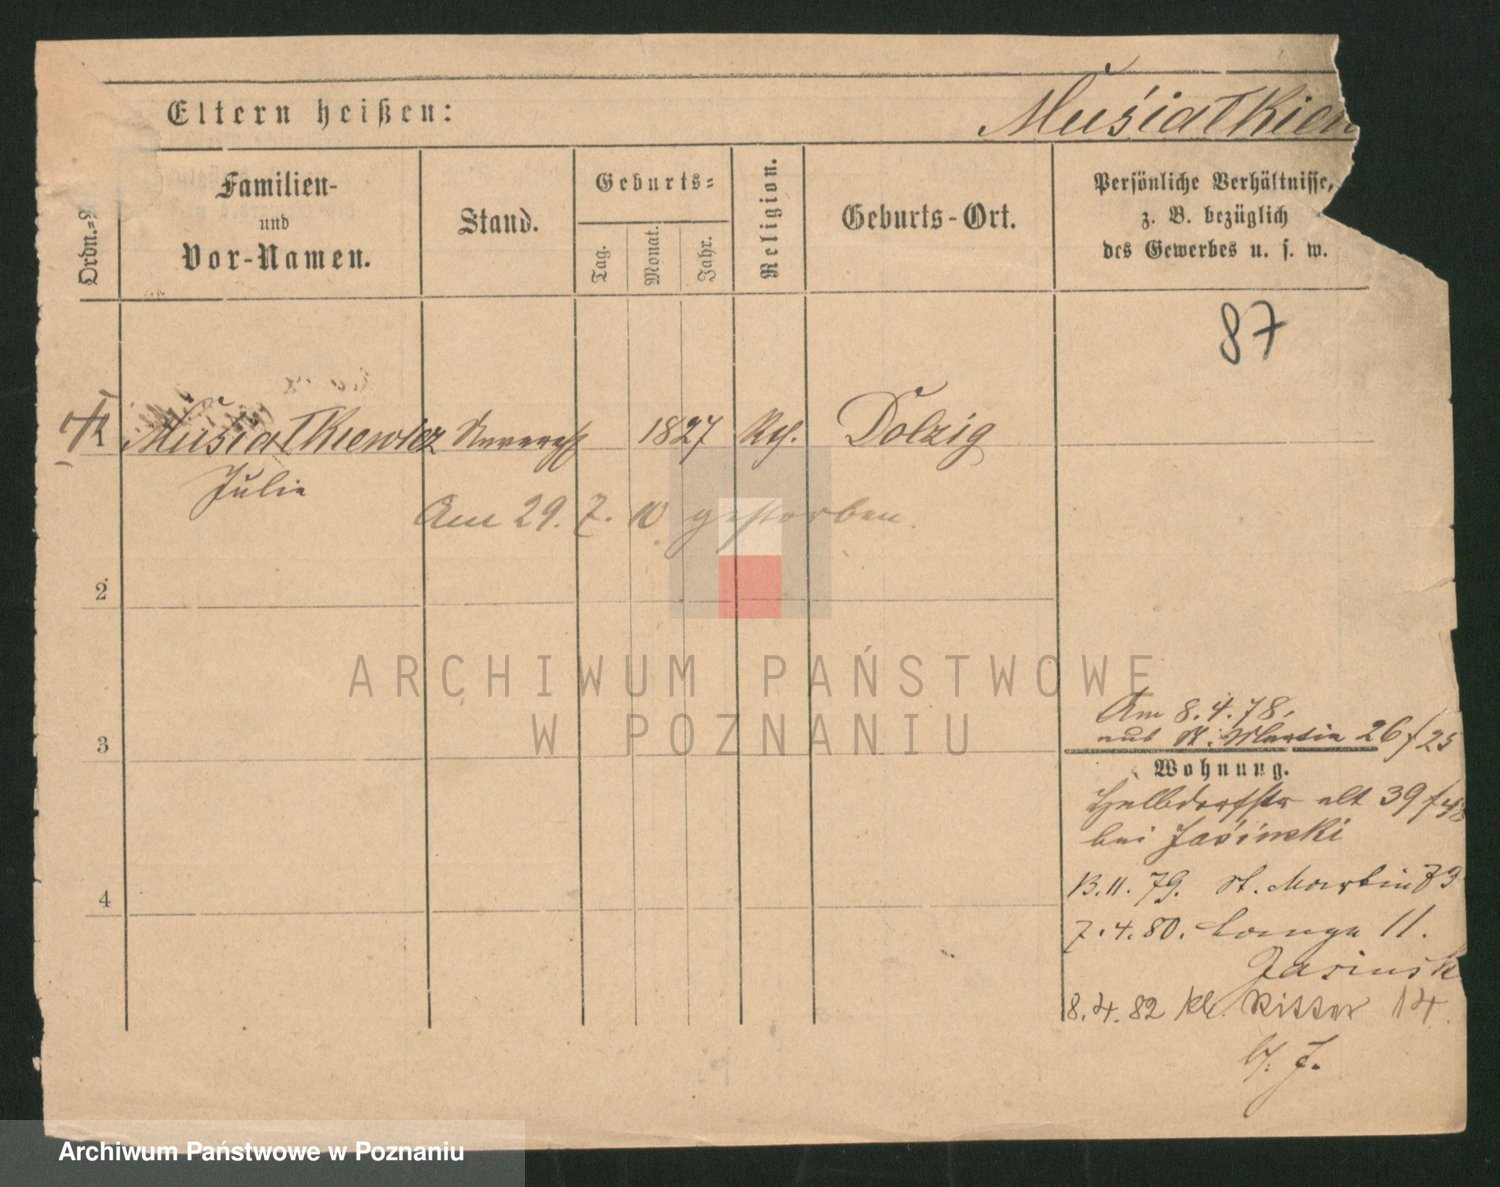 Eltern heißen:
Muśiałkiew
Ordn.=
Familien-
und
Vor-Namen.
Stand.
Geburts=
Tag.
Monat.
Jahr.
Religion.
Geburts-Ort.
Persönliche Verhältnisse,
z. B. bezüglich
des Gewerbes u. s. w.
87
Muśiałkiewicz 1827 Dolzig
Julie
Am 29. 7. gestorben.
2
3
4
Am 8.4.78.
St. Martin 26/25
Wohnung.
Halbdorfstr alt 39/
bei Jasinski
13.11.79. St. Martin 73
7.4.80. Lange 11.
Jasinsk
8.4.82 kl. Ritter 14.
b/. J.
ARCHIWUM PAŃSTWOWE
W POZNANIU
Archiwum Państwowe w Poznaniu